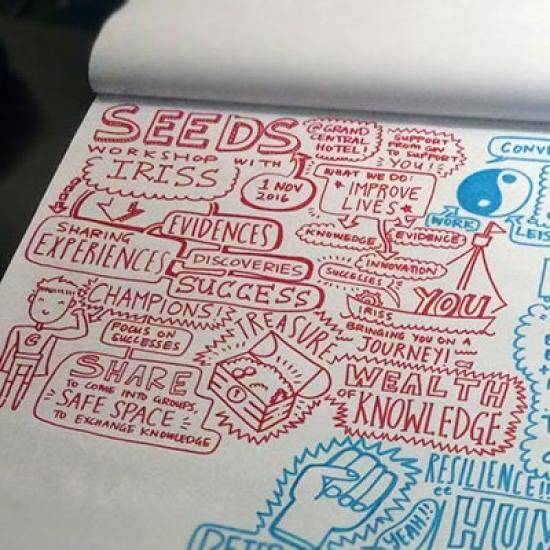 SEEDS
WORKSHOP WITH
IRISS
@ GRAND
CENTRAL
HOTEL!
1 NOV
2016
SUPPORT
TO SUPPORT
YOU!
WHAT WE DO:
* IMPROVE
LIVES *
KNOWLEDGE
EVIDENCE
INNOVATION
SUCCESSES
SHARING
EXPERIENCES
EVIDENCES
DISCOVERIES
SUCCESS
IRISS
YOU
BRINGING YOU ON A
JOURNEY!
CHAMPIONS!
FOCUS ON
SUCCESSES
SHARE
TO COME INTO GROUPS,
SAFE SPACE
TO EXCHANGE KNOWLEDGE
TREASURE
WEALTH
OF KNOWLEDGE
CONV
WORK
LEIS
RESILIENCE!!
YEAH!!
HUM